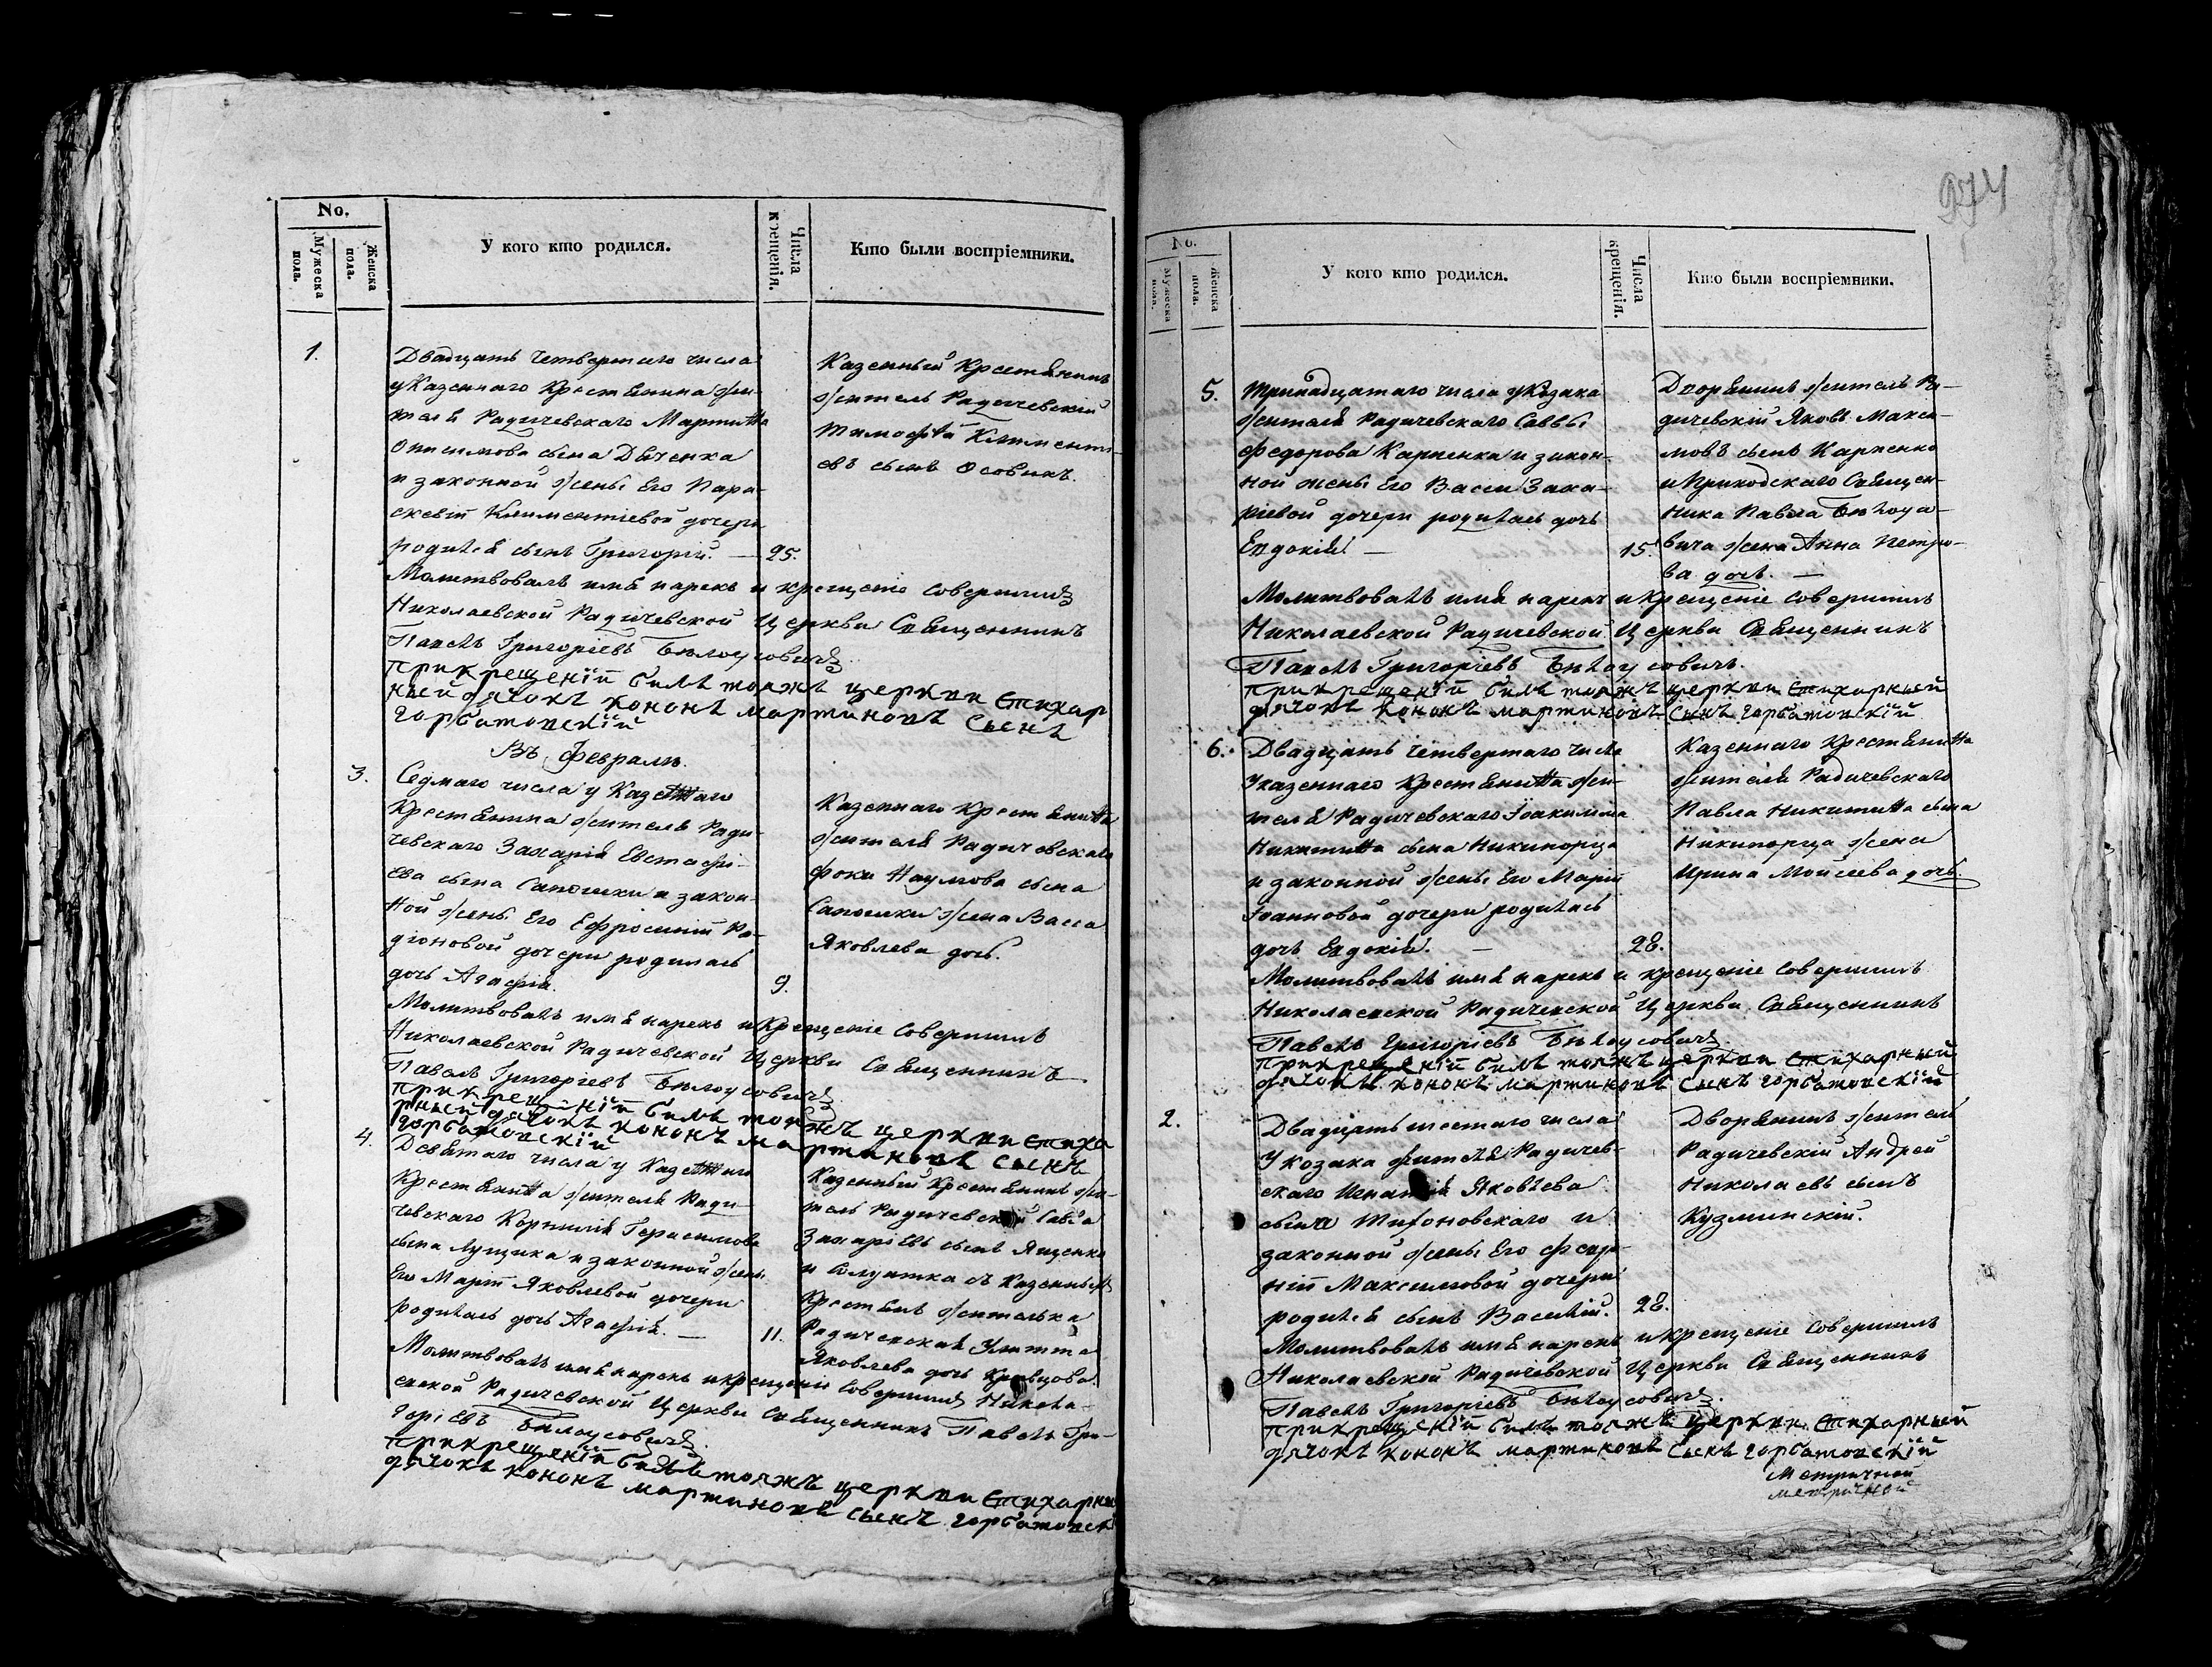 No.
Мужеска пола.
Женска пола.
У кого кто родился.
Числа крещенія.
Кто были воспріемники.
1.
Двадцать четвертаго числа
у Казеннаго Крестьянина жи-
теля Радичевскаго Мартина
Онисимова сына Дяченка
и законной жены его Пара-
скевіи Климентіевой дочери
родился сынъ Григорій. — 25.
Казенный Крестьянинъ
житель Радичевскій
Тимофей Климентi-
евъ сынъ Осовикъ.
Молитвовалъ имя нарекъ и крещеніе совершилъ
Николаевской Радичевской Церкви Священникъ
Павелъ Григоріевъ Бѣлоусовичъ
При крещеніи билъ тояжъ церкви стихар
ный дячокъ кононъ мартиновъ сынъ
горбатовскій
Въ Февралѣ.
3.
Седмаго числа у Казеннаго
Крестьянина жителя Ради-
чевскаго Захарія Евстафі-
ева сына Сапошки и закон-
ной жены его Ефросиніи Ро-
діоновой дочери родилась
дочь Агафія. 9.
Казеннаго Крестьянина
жителя Радичевскаго
Фоки Наумова сына
Сапошки жена Васса
Яковлева дочь.
Молитвовалъ имя нарекъ и Крещеніе совершилъ
Николаевской Радичевской Церкви Священникъ
Павелъ Григоріевъ Бѣлоусовичъ
При крещеніи билъ тояжъ церкви стиха
рный дячокъ кононъ мартиновъ сынъ
горбатовскій
4.
Девятаго числа у Казеннаго
Крестьянина жителя Ради-
чевскаго Корнилія Герасимова
сына Лущика и законной жены
его Маріи Яковлевой дочери
родилась дочь Агафія. — 11.
Казенный Крестьянинъ жи-
тель Радичевскій Савва
Захаріевъ сынъ Ященко
и Солдатка съ Казенныхъ
Крестьянъ жителька
Радичевская Улитта
Яковлева дочь Кравцова.
Молитвовалъ имя нарекъ и крещеніе совершилъ Никола-
евской Радичевской Церкви Священникъ Павелъ Гри-
горіевъ Бѣлоусовичъ.
При крещеніи билъ тояжъ церкви стихарны
дячокъ кононъ мартиновъ сынъ горбатовск
274
No.
Мужеска пола.
Женска пола.
У кого кто родился.
Числа крещенія.
Кто были воспріемники.
5.
Тринадцатаго числа у Козака
жителя Радичевскаго Саввы
Федорова Карпенка и закон-
ной жены его Вассы Заха-
ріевой дочери родилась дочь
Евдокія. — 15.
Дворянинъ житель Ра-
дичевскій Яковъ Макси-
мовъ сынъ Карпенко
и Приходскаго Священ-
ника Павла Бѣлоусо-
вича жена Анна Петро-
ва дочь. —
Молитвовалъ имя нарекъ и Крещеніе совершилъ
Николаевской Радичевской Церкви Священникъ
Павелъ Григоріевъ Бѣлоусовичъ.
При крещеніи билъ тояжъ церкви стихарный
дячокъ кононъ мартиновъ сынъ горбатовскій
6.
Двадцать четвертаго числа
у казеннаго Крестьянина жи-
теля Радичевскаго Іоакима
Никитина сына Никипорца
и законной жены его Маріи
Іоанновой дочери родилась
дочь Евдокія. — 28.
Казеннаго Крестьянина
жителя Радичевскаго
Павла Никитина сына
Никипорца жена
Ирина Мойсеева дочь.
Молитвовалъ имя нарекъ и крещеніе совершилъ
Николаевской Радичевской Церкви Священникъ
Павелъ Григоріевъ Бѣлоусовичъ.
При крещеніи билъ тояжъ церкви стихарный
дячокъ кононъ мартиновъ сынъ горбатовскій
2.
Двадцать шестаго числа
У козака жителя Радичев-
скаго Игнатія Яковлева
сына Тихоновскаго и
законной жены его Февро-
ніи Максимовой дочери
родился сынъ Василій. 28.
Дворянинъ житель
Радичевскій Андрей
Николаевъ сынъ
Кузминскій.
Молитвовалъ имя нарекъ и крещеніе совершилъ
Николаевской Радичевской Церкви Священникъ
Павелъ Григоріевъ Бѣлоусовичъ.
При крещеніи билъ тояжъ церкви стихарный
дячокъ кононъ мартиновъ сынъ горбатовскій
Метричной
метричной